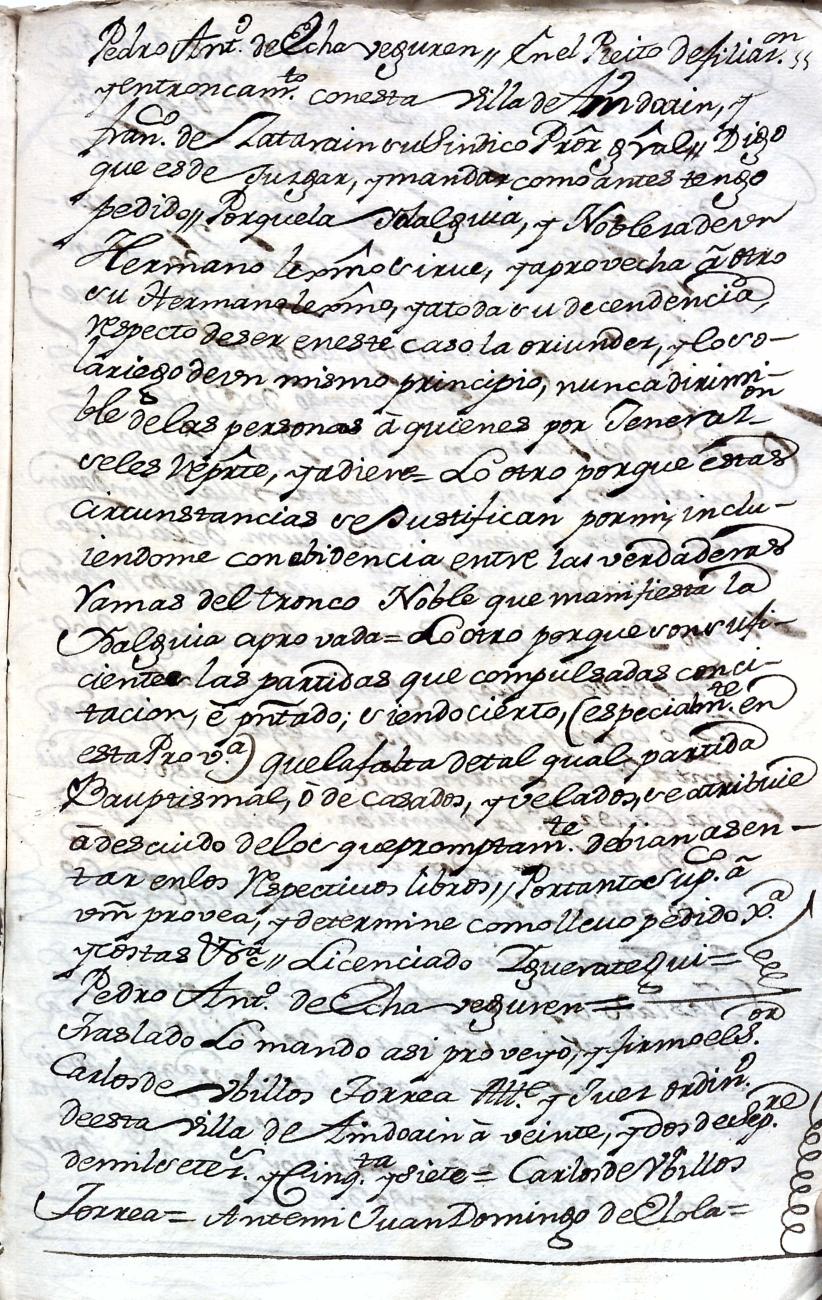 Pedro Antº. de Echaveguren,, En el Pleito de filiazon.
y entroncamto. con esta Villa de Andoain, y
franco. de Zatarain su Sindico Pror. gral,, Digo
que es de Juzgar, y mandar como antes tengo
pedido,, Porque la Idalguia, y Nobleza de vn
Hermano lexmo sirue, y aprovecha â otro
su Hermano lexmo, y a toda su decendencia,
respecto de ser en este caso la oriundez, y lo so-
lariego de vn mismo principio, nunca dirimi-
ble de las personas â quienes por Generazon
se les reprte, y adiere= Lo otro porque estas
circunstancias se Justifican por mi, inclu-
iendome con ebidencia entre las verdaderas
ramas del tronco Noble que manifiesta la
Idalguia aprovada= Lo otro porque son sufi-
cientes las partidas que compulsadas con ci-
tacion, ê pntado; siendo cierto, (especialmte. en
esta Prova.) que la falta de tal qual partida
Bauptismal, ô de casados, y velados, se atribuie
â descuido de los que promptamte. debian asen-
tar en los respectiuos libros,, Por tanto Supco. â
vm provea, y determine como lleuo pedido Xa.
y costas &ca,, Licenciado Egurategui=
Pedro Antº. de Echaveguren=
Traslado Lo mando asi proveyò, y firmo el Sor.
Carlos de Vbillos Torrea Alle. y Juez ordinº.
de esta Villa de Andoain â veinte, y dos de Sepre.
de mil setes. y Cinqta. y siete= Carlos de Vbillos
Torrea= Antemi Juan Domingo de Elola=